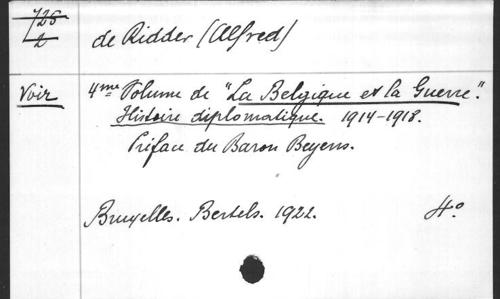 726
2
de Ridder (Alfred)
Voir
4me Volume de "La Belgique et la Guerre."
Histoire diplomatique. 1914-1918.
Préface du Baron Beyens.
Bruxelles. Bertels. 1922. 4°